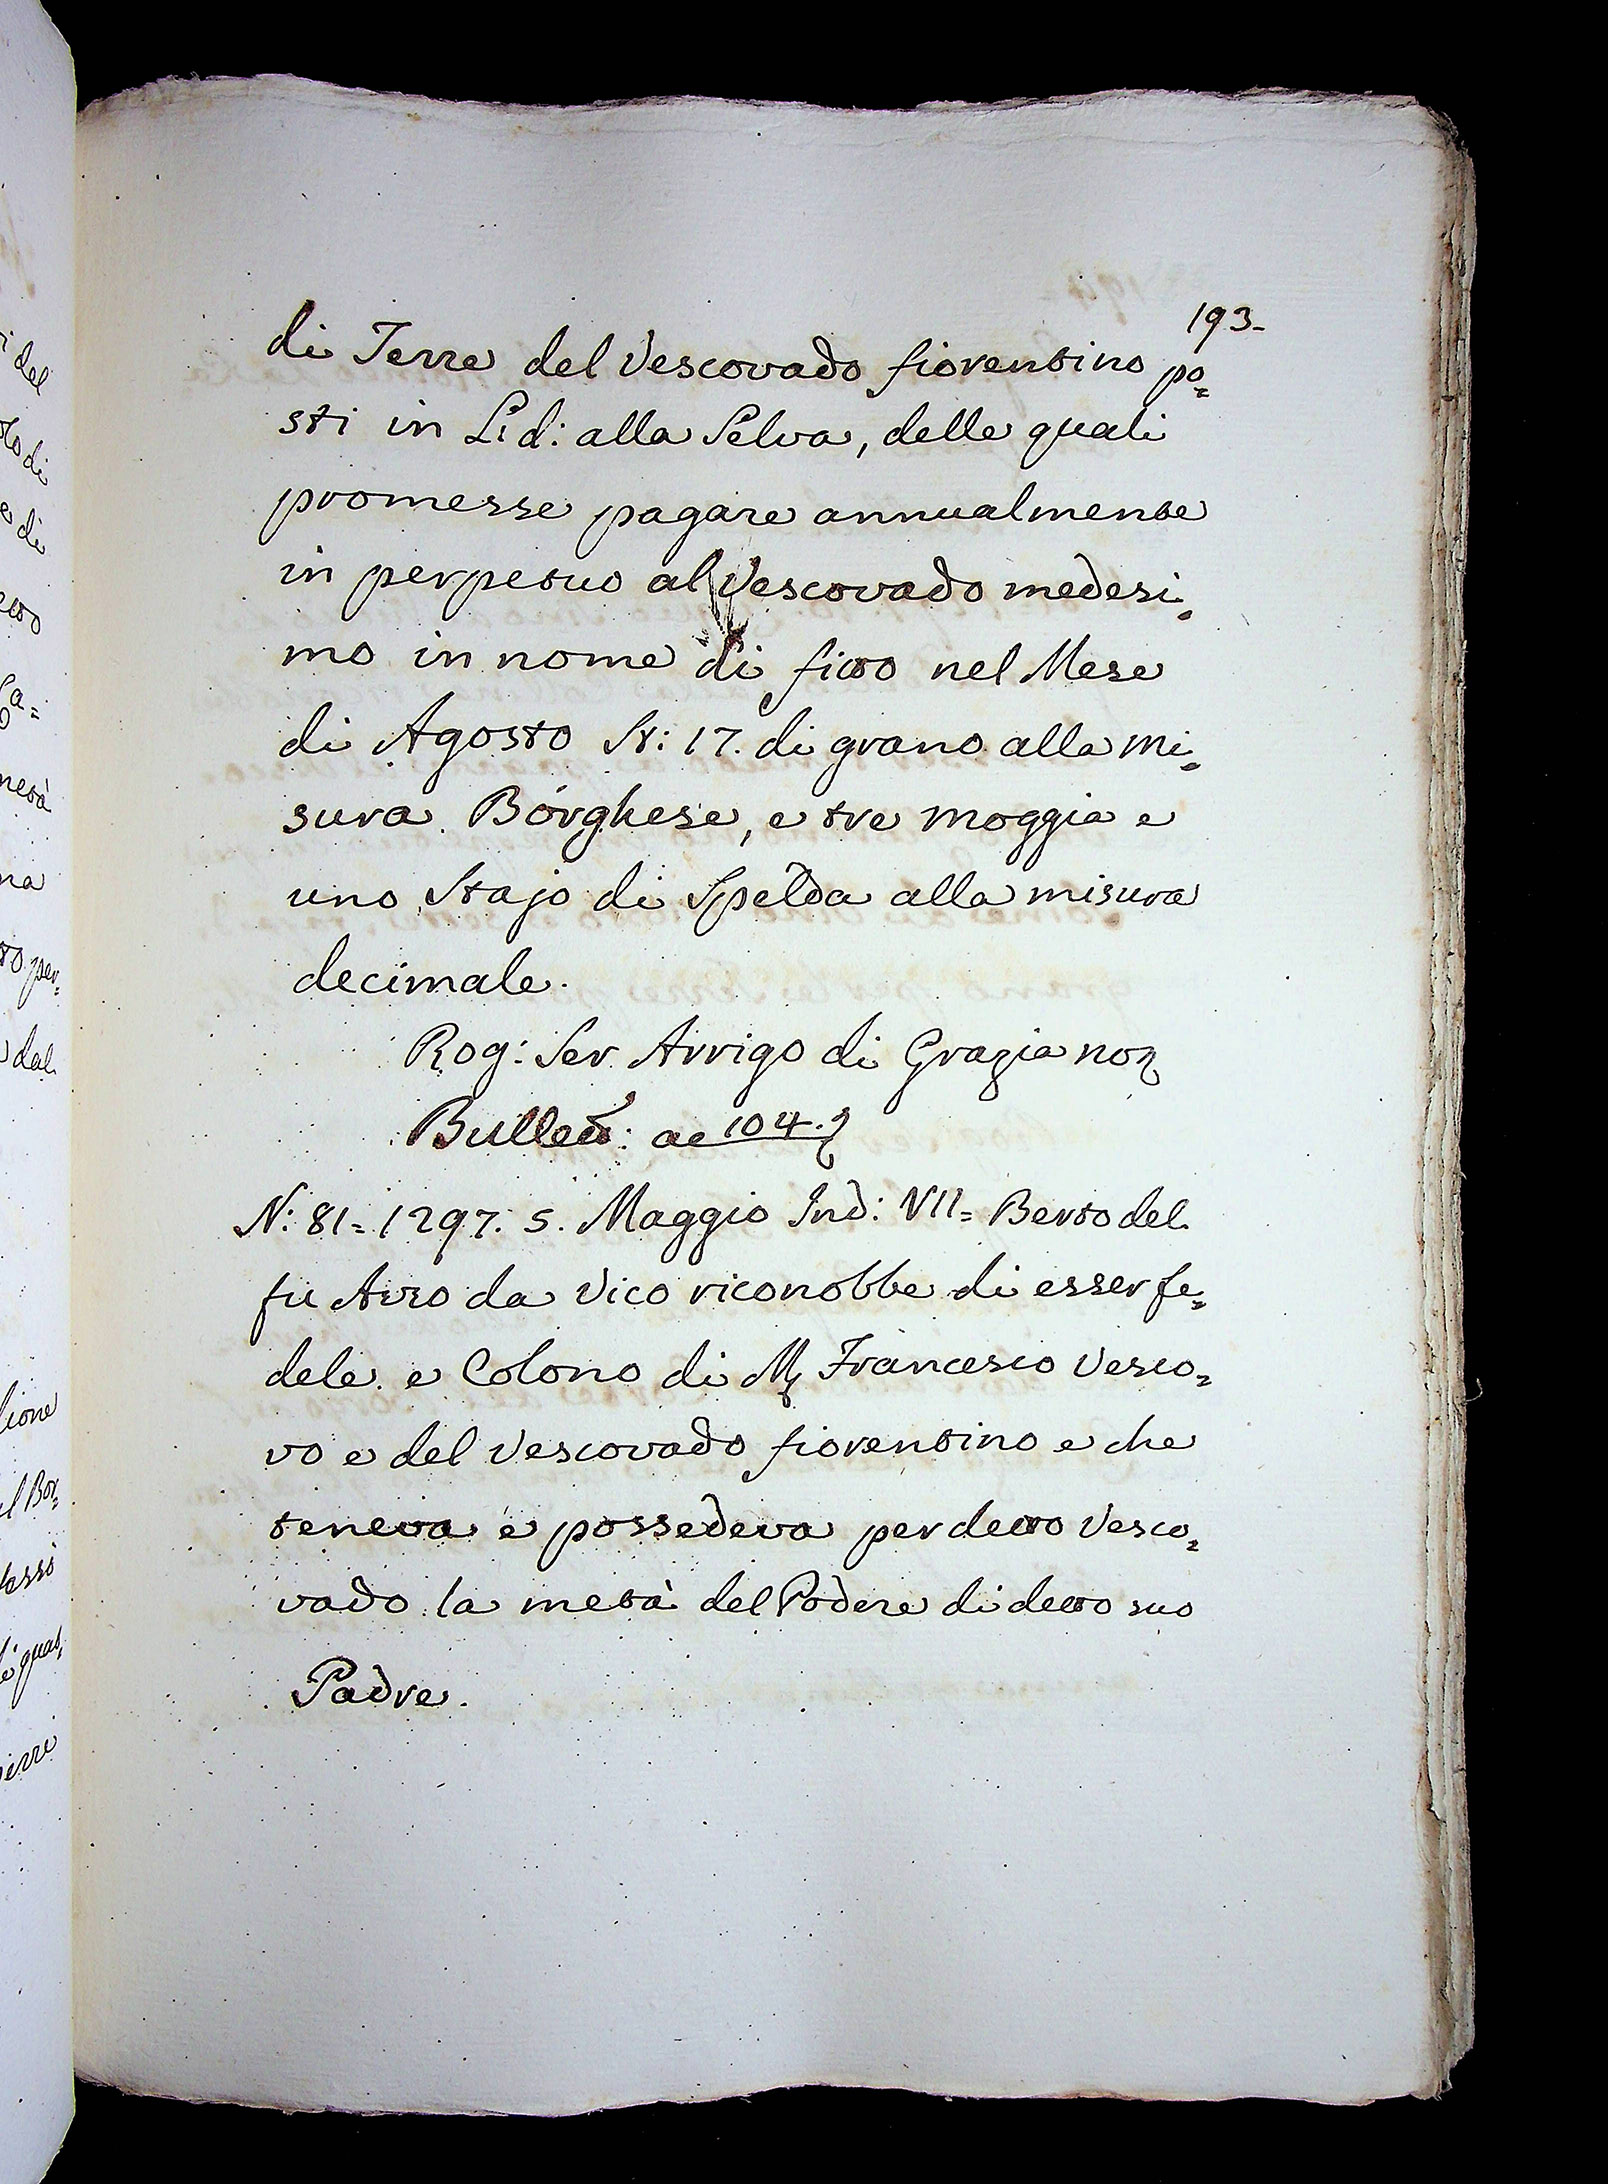 193-
di Terre del Vescovado fiorentino po=
sti in Lid: alla Selva, delle quali
promesse pagare annualmente
in perpetuo al Vescovado medesi=
mo in nome di fitto nel Mese
di Agosto St: 17. di grano alla mi=
sura Borghese, e tre moggia e
uno Stajo di Spelda alla misura
decimale.
Rog: Ser Arrigo di Grazia no
Bullett: ac 104.
N: 81= 1297. 5. Maggio Ind: VII= Berto del
fu da Vico riconobbe di esser fe=
dele e Colono di M Francesco Vesco=
vo e del Vescovado fiorentino e che
teneva e possedeva per detto Vesco=
vado la metà del Podere di detto suo
Padre.
i del
to di
e di
etto
Ca=
metà
na
to per=
dal
lione
l Bor=
lassò